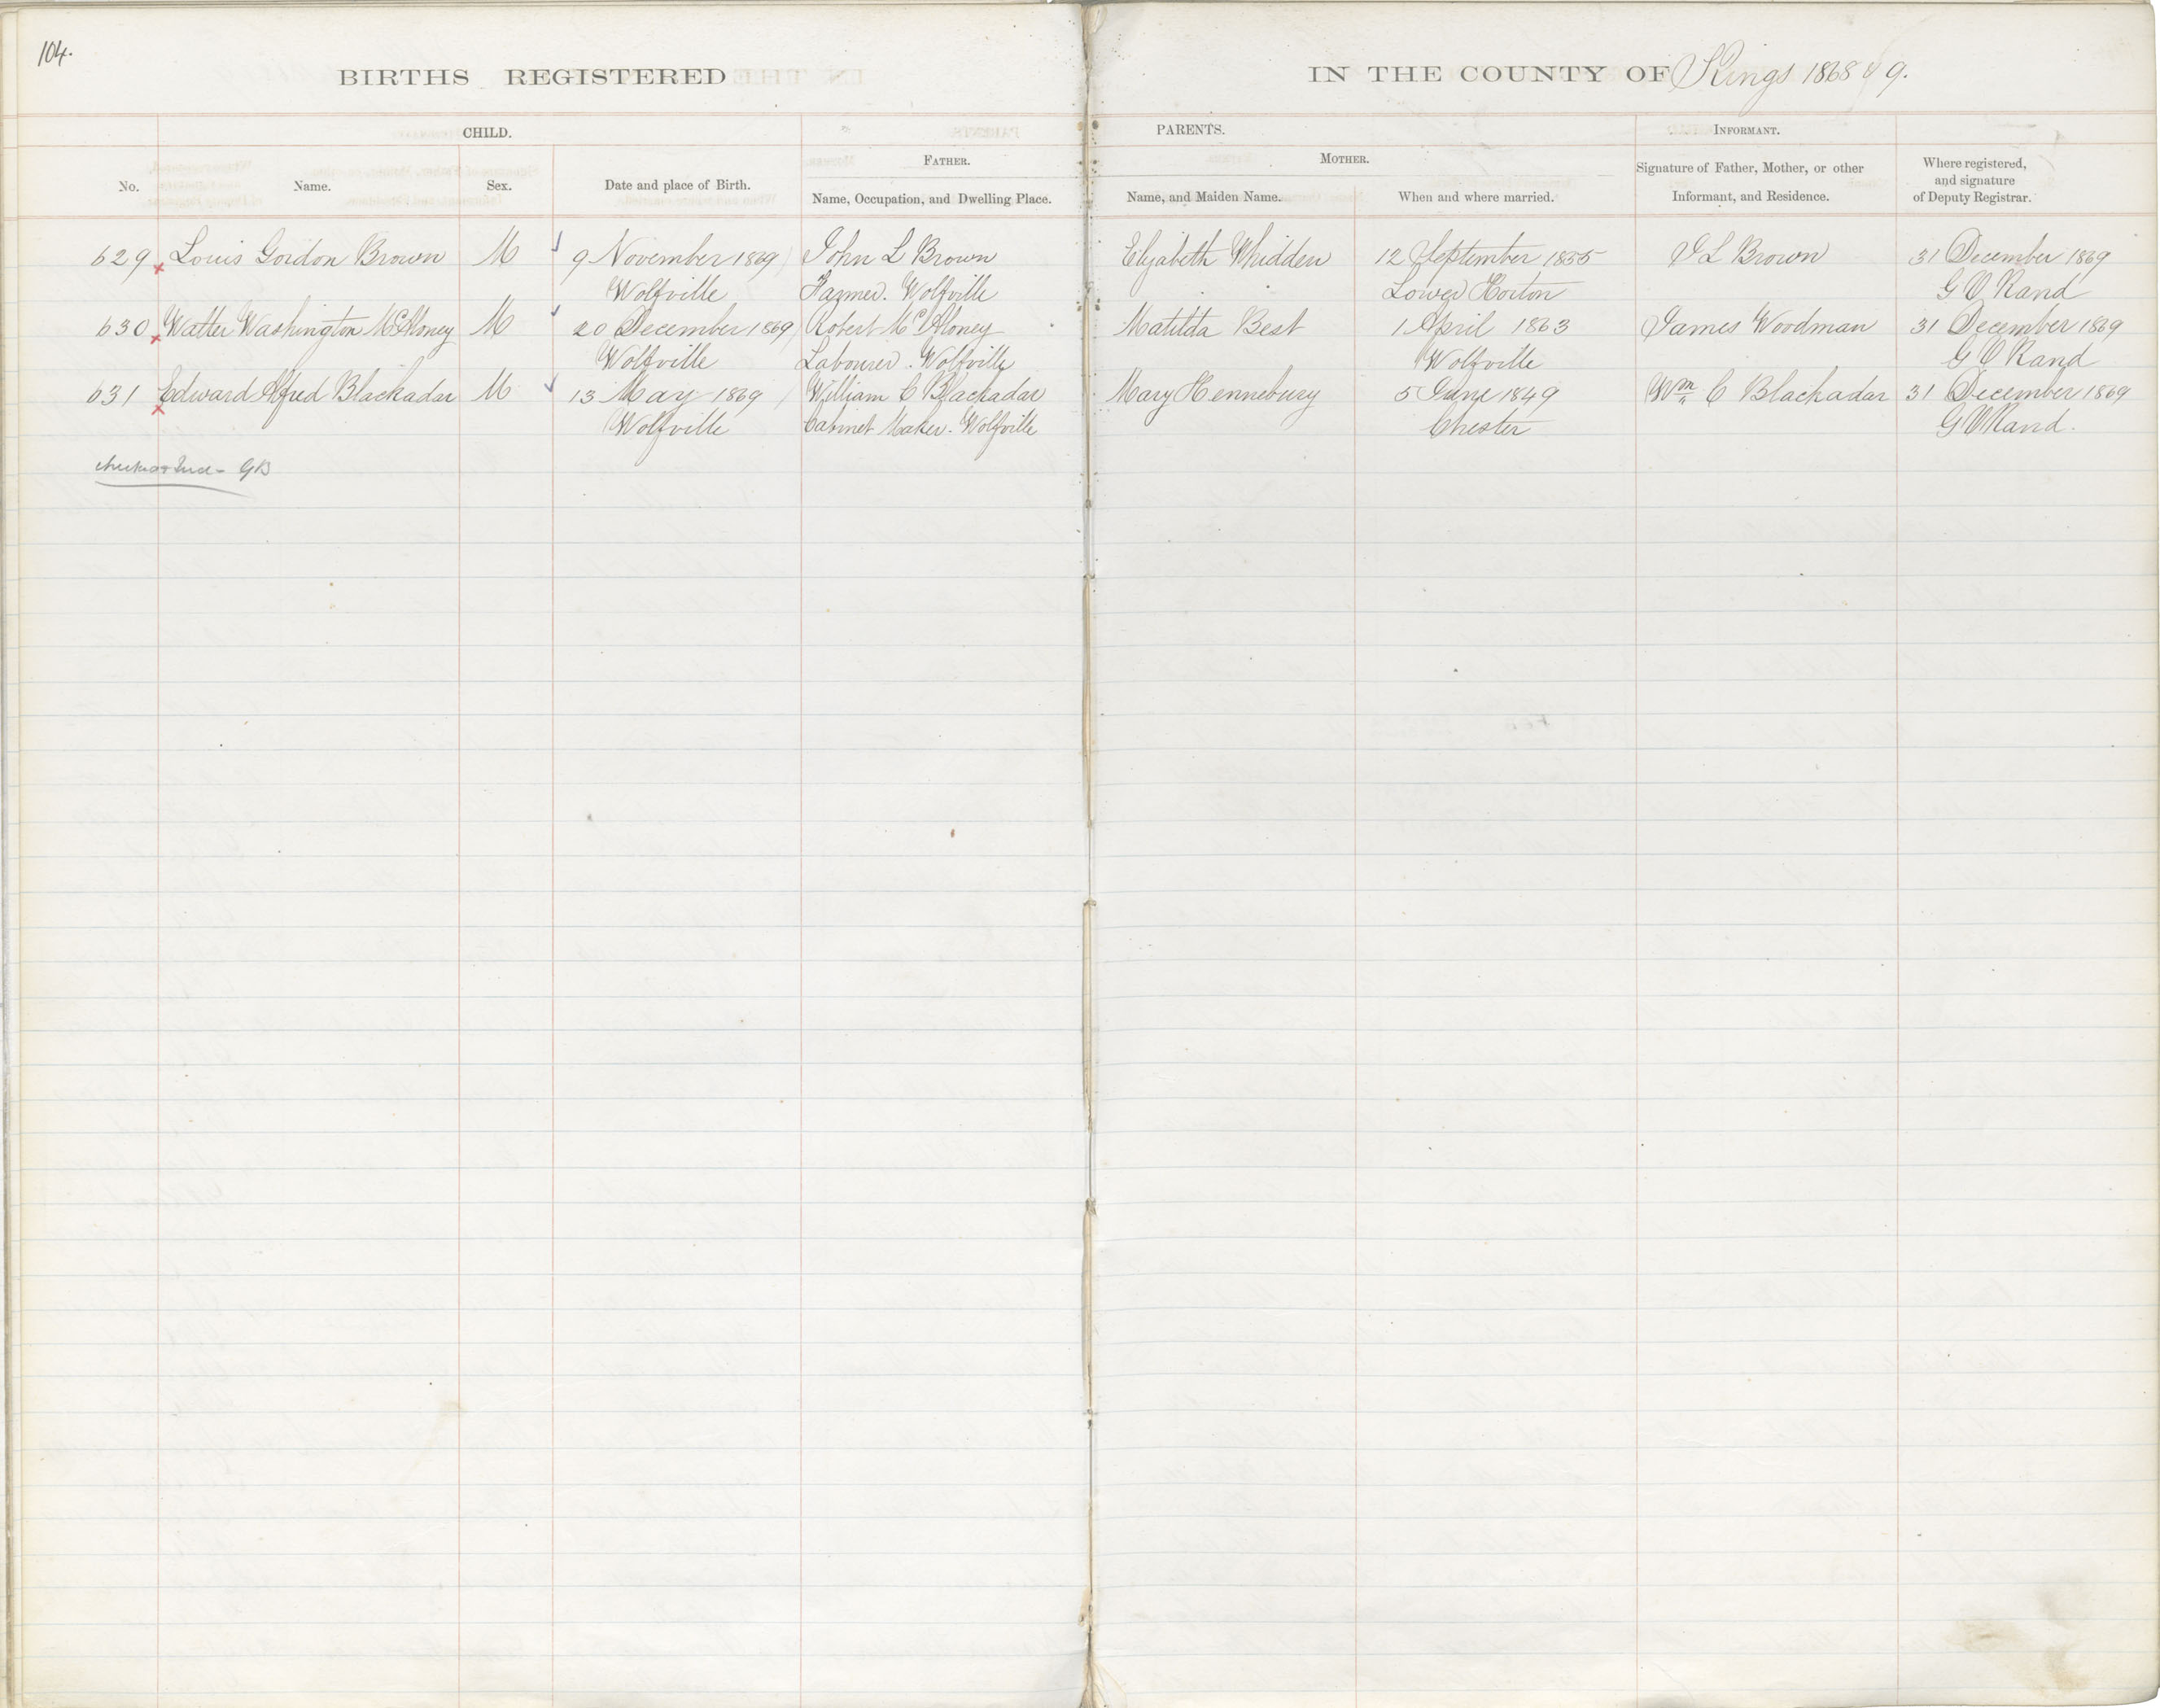 104.
BIRTHS REGISTERED IN THE COUNTY OF Kings 1868 & 9.
CHILD. PARENTS. INFORMANT.
FATHER. MOTHER.
No. Name. Sex. Date and place of Birth. Name, Occupation, and Dwelling Place. Name, and Maiden Name. When and where married. Signature of Father, Mother, or other Informant, and Residence. Where registered, and signature of Deputy Registrar.
629 Louis Gordon Brown M 9 November 1869 John L Brown Elizabeth Whidden 12 September 1855 J L Brown 31 December 1869
Wolfville Farmer. Wolfville Lower Horton G V Rand
630 Walter Washington McAloney M 20 December 1869 Robert McAloney Matilda Best 1 April 1863 James Woodman 31 December 1869
Wolfville Labourer. Wolfville Wolfville G V Rand
631 Edward Alfred Blackadar M 13 May 1869 William C Blackadar Mary Hennebury 5 June 1849 Wm C Blackadar 31 December 1869
Wolfville Cabinet Maker. Wolfville Chester G V Rand.
GB